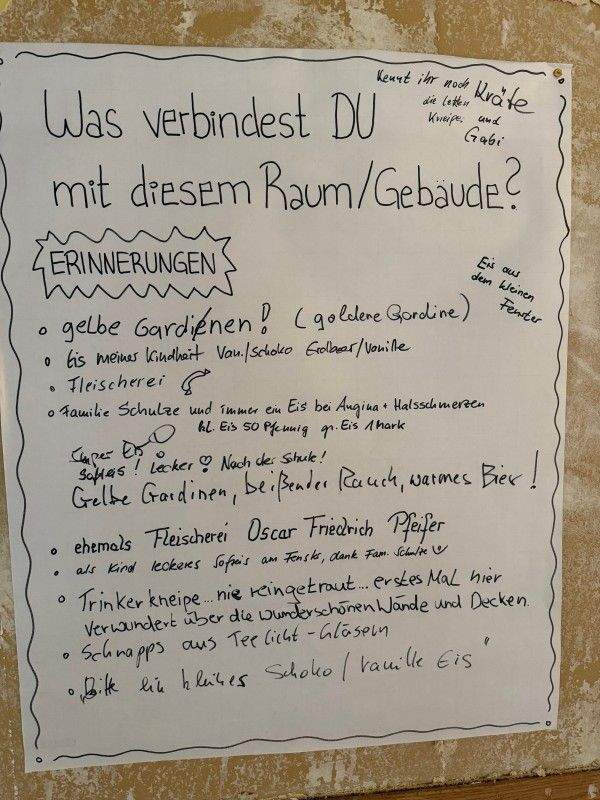 Kennt ihr noch
die letzten Kräte
Kneipe und
Gabi
Was verbindest DU
mit diesem Raum/Gebäude?
ERINNERUNGEN
Eis aus
dem kleinen
Fenster
gelbe Gardinen! (goldene Gardine)
Eis meiner Kindheit Van./Schoko Erdbeer/Vanille
Fleischerei
Familie Schulze und immer ein Eis bei Angina + Halsschmerzen
kl. Eis 50 Pfennig gr. Eis 1 Mark
Super Eis
Softeis! Lecker! Nach der Schule!
Gelbe Gardinen, beißender Rauch, warmes Bier!
ehemals Fleischerei Oscar Friedrich Pfeifer
als Kind leckeres Softeis am Fenster, dank Fam. Schulze
Trinkerkneipe...nie reingetraut...erstes Mal hier
verwundert über die wunderschönen Wände und Decken.
Schnapps aus Teelicht-Gläseln
"Bitte ein kleines Schoko/Vanille Eis"